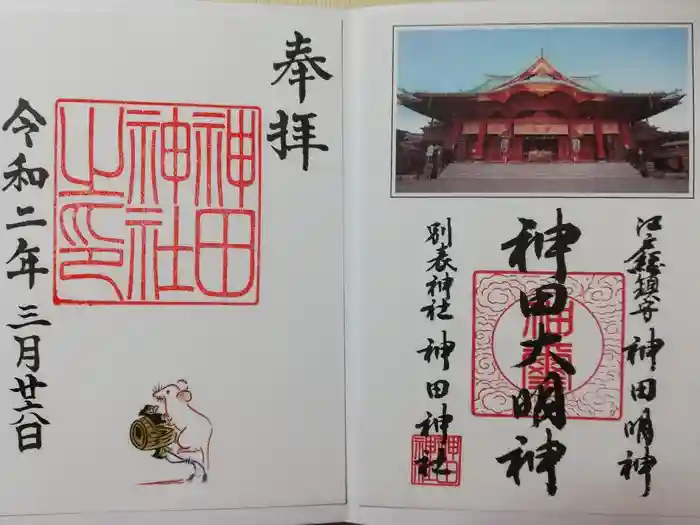 奉拝
神田
神社
之印
令和二年三月廿六日
江戸総鎮守 神田明神
神田大明神
別表神社 神田神社
神田
神社